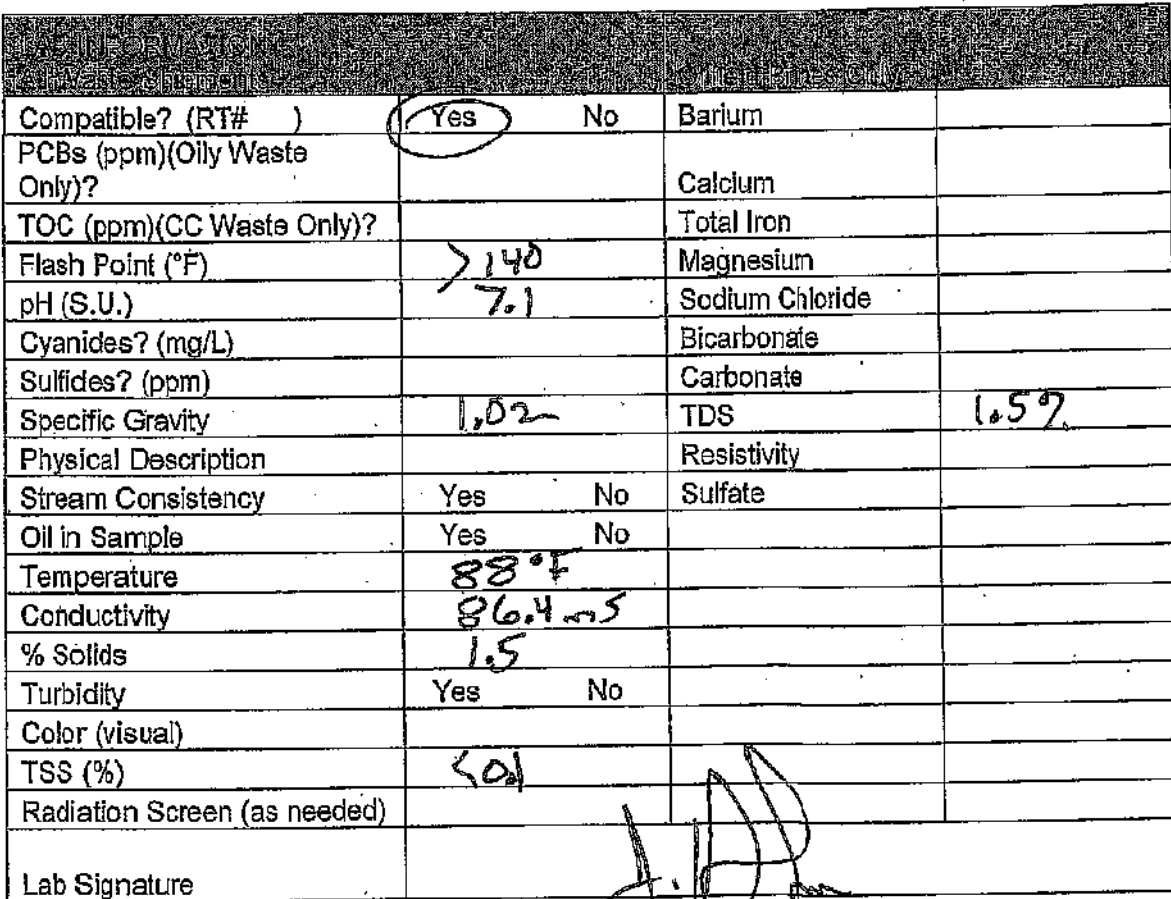 LAB INFORMATION
All Waste Shipments Oilfield Brines Only
Compatible? (RT# ) Yes No Barium
PCBs (ppm)(Oily Waste
Only)? Calcium
TOC (ppm)(CC Waste Only)? Total Iron
Flash Point (°F) >140 Magnesium
pH (S.U.) 7.1 Sodium Chloride
Cyanides? (mg/L) Bicarbonate
Sulfides? (ppm) Carbonate
Specific Gravity 1.02 TDS 1.5%
Physical Description Resistivity
Stream Consistency Yes No Sulfate
Oil in Sample Yes No
Temperature 88°F
Conductivity 86.4 mS
% Solids 1.5
Turbidity Yes No
Color (visual)
TSS (%) <0.1
Radiation Screen (as needed)
Lab Signature